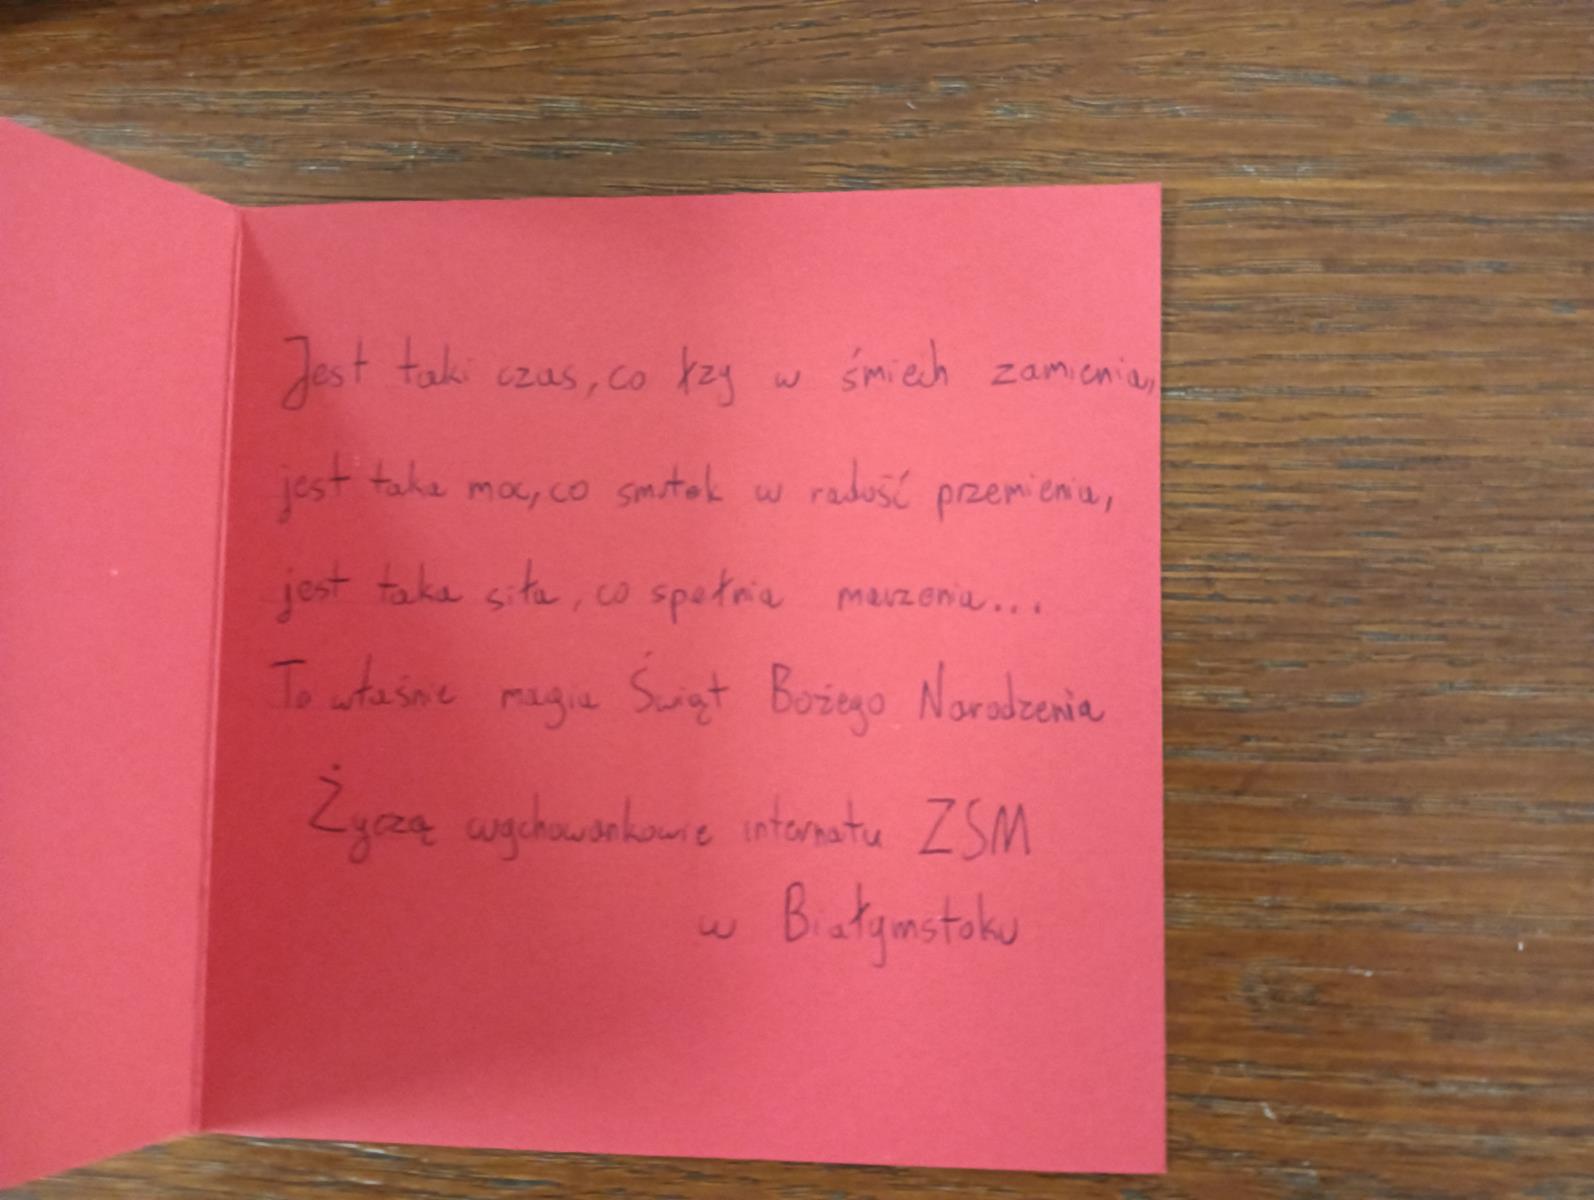 Jest taki czas, co łzy w śmiech zamienia,
jest taka moc, co smutek w radość przemienia,
jest taka siła, co spełnia marzenia...
To właśnie magia Świąt Bożego Narodzenia
Życzą wychowankowie internatu ZSM
w Białymstoku